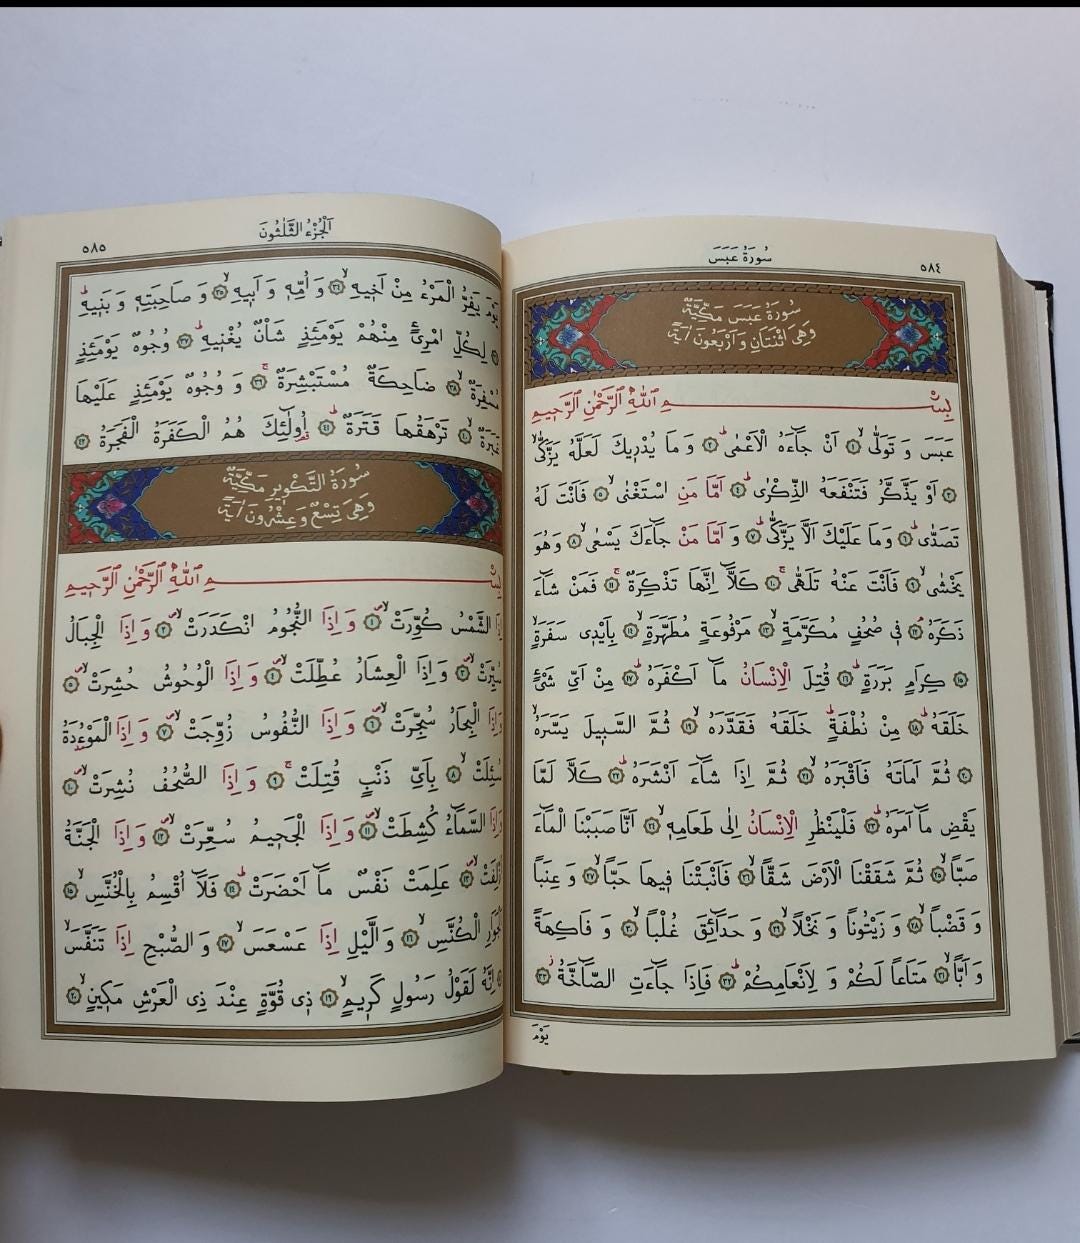 سُورَةُ عَبَسَ
٥٨٤
سُورَةُ عَبَسَ مَكِّيَّةٌ
وَهِىَ اثْنَتَانِ وَاَرْبَعُونَ اٰيَةً
بِسْمِ اللّٰهِ الرَّحْمٰنِ الرَّحِيمِ
عَبَسَ وَتَوَلّٰىۙ ﴿١﴾ اَنْ جَٓاءَهُ الْاَعْمٰىۜ ﴿٢﴾ وَمَا يُدْرٖيكَ لَعَلَّهُ يَزَّكّٰىۙ
﴿٣﴾ اَوْ يَذَّكَّرُ فَتَنْفَعَهُ الذِّكْرٰىۜ ﴿٤﴾ اَمَّا مَنِ اسْتَغْنٰىۙ ﴿٥﴾ فَاَنْتَ لَهُ
تَصَدّٰىۜ ﴿٦﴾ وَمَا عَلَيْكَ اَلَّا يَزَّكّٰىۜ ﴿٧﴾ وَاَمَّا مَنْ جَٓاءَكَ يَسْعٰىۙ ﴿٨﴾ وَهُوَ
يَخْشٰىۙ ﴿٩﴾ فَاَنْتَ عَنْهُ تَلَهّٰىۚ ﴿١٠﴾ كَلَّٓا اِنَّهَا تَذْكِرَةٌۚ ﴿١١﴾ فَمَنْ شَٓاءَ
ذَكَرَهُۢ ﴿١٢﴾ فٖى صُحُفٍ مُكَرَّمَةٍۙ ﴿١٣﴾ مَرْفُوعَةٍ مُطَهَّرَةٍۙ ﴿١٤﴾ بِاَيْدٖى سَفَرَةٍۙ
﴿١٥﴾ كِرَامٍ بَرَرَةٍۜ ﴿١٦﴾ قُتِلَ الْاِنْسَانُ مَٓا اَكْفَرَهُۜ ﴿١٧﴾ مِنْ اَىِّ شَىْءٍ
خَلَقَهُۜ ﴿١٨﴾ مِنْ نُطْفَةٍۜ خَلَقَهُ فَقَدَّرَهُۙ ﴿١٩﴾ ثُمَّ السَّبٖيلَ يَسَّرَهُۙ
﴿٢٠﴾ ثُمَّ اَمَاتَهُ فَاَقْبَرَهُۙ ﴿٢١﴾ ثُمَّ اِذَا شَٓاءَ اَنْشَرَهُۜ ﴿٢٢﴾ كَلَّا لَمَّا
يَقْضِ مَٓا اَمَرَهُۜ ﴿٢٣﴾ فَلْيَنْظُرِ الْاِنْسَانُ اِلٰى طَعَامِهٖۙ ﴿٢٤﴾ اَنَّا صَبَبْنَا الْمَٓاءَ
صَبًّاۙ ﴿٢٥﴾ ثُمَّ شَقَقْنَا الْاَرْضَ شَقًّاۙ ﴿٢٦﴾ فَاَنْبَتْنَا فٖيهَا حَبًّاۙ ﴿٢٧﴾ وَعِنَبًا
وَقَضْبًاۙ ﴿٢٨﴾ وَزَيْتُونًا وَنَخْلًاۙ ﴿٢٩﴾ وَحَدَٓائِقَ غُلْبًاۙ ﴿٣٠﴾ وَفَاكِهَةً
وَاَبًّاۙ ﴿٣١﴾ مَتَاعًا لَكُمْ وَلِاَنْعَامِكُمْۜ ﴿٣٢﴾ فَاِذَا جَٓاءَتِ الصَّٓاخَّةُؗ ﴿٣٣﴾
يَوْمَ
اَلْجُزْءُ الثَّلٰثُونَ
٥٨٥
يَوْمَ يَفِرُّ الْمَرْءُ مِنْ اَخٖيهِۙ ﴿٣٤﴾ وَاُمِّهٖ وَاَبٖيهِۙ ﴿٣٥﴾ وَصَاحِبَتِهٖ وَبَنٖيهِۜ
﴿٣٦﴾ لِكُلِّ امْرِئٍ مِنْهُمْ يَوْمَئِذٍ شَأْنٌ يُغْنٖيهِۜ ﴿٣٧﴾ وُجُوهٌ يَوْمَئِذٍ
مُسْفِرَةٌۙ ﴿٣٨﴾ ضَاحِكَةٌ مُسْتَبْشِرَةٌۚ ﴿٣٩﴾ وَوُجُوهٌ يَوْمَئِذٍ عَلَيْهَا
غَبَرَةٌۙ ﴿٤٠﴾ تَرْهَقُهَا قَتَرَةٌۜ ﴿٤١﴾ اُولٰٓئِكَ هُمُ الْكَفَرَةُ الْفَجَرَةُ ﴿٤٢﴾
سُورَةُ التَّكْوٖيرِ مَكِّيَّةٌ
وَهِىَ تِسْعٌ وَعِشْرُونَ اٰيَةً
بِسْمِ اللّٰهِ الرَّحْمٰنِ الرَّحِيمِ
اِذَا الشَّمْسُ كُوِّرَتْۙ ﴿١﴾ وَاِذَا النُّجُومُ انْكَدَرَتْۙ ﴿٢﴾ وَاِذَا الْجِبَالُ
سُيِّرَتْۙ ﴿٣﴾ وَاِذَا الْعِشَارُ عُطِّلَتْۙ ﴿٤﴾ وَاِذَا الْوُحُوشُ حُشِرَتْۙ ﴿٥﴾
وَاِذَا الْبِحَارُ سُجِّرَتْۙ ﴿٦﴾ وَاِذَا النُّفُوسُ زُوِّجَتْۙ ﴿٧﴾ وَاِذَا الْمَوْءُ۫دَةُ
سُئِلَتْۙ ﴿٨﴾ بِاَىِّ ذَنْبٍ قُتِلَتْۚ ﴿٩﴾ وَاِذَا الصُّحُفُ نُشِرَتْۙ ﴿١٠﴾
وَاِذَا السَّمَٓاءُ كُشِطَتْۙ ﴿١١﴾ وَاِذَا الْجَحٖيمُ سُعِّرَتْۙ ﴿١٢﴾ وَاِذَا الْجَنَّةُ
اُزْلِفَتْۙ ﴿١٣﴾ عَلِمَتْ نَفْسٌ مَٓا اَحْضَرَتْۜ ﴿١٤﴾ فَلَٓا اُقْسِمُ بِالْخُنَّسِۙ ﴿١٥﴾
اَلْجَوَارِ الْكُنَّسِۙ ﴿١٦﴾ وَالَّيْلِ اِذَا عَسْعَسَۙ ﴿١٧﴾ وَالصُّبْحِ اِذَا تَنَفَّسَۙ
﴿١٨﴾ اِنَّهُ لَقَوْلُ رَسُولٍ كَرٖيمٍۙ ﴿١٩﴾ ذٖى قُوَّةٍ عِنْدَ ذِى الْعَرْشِ مَكٖينٍۙ ﴿٢٠﴾